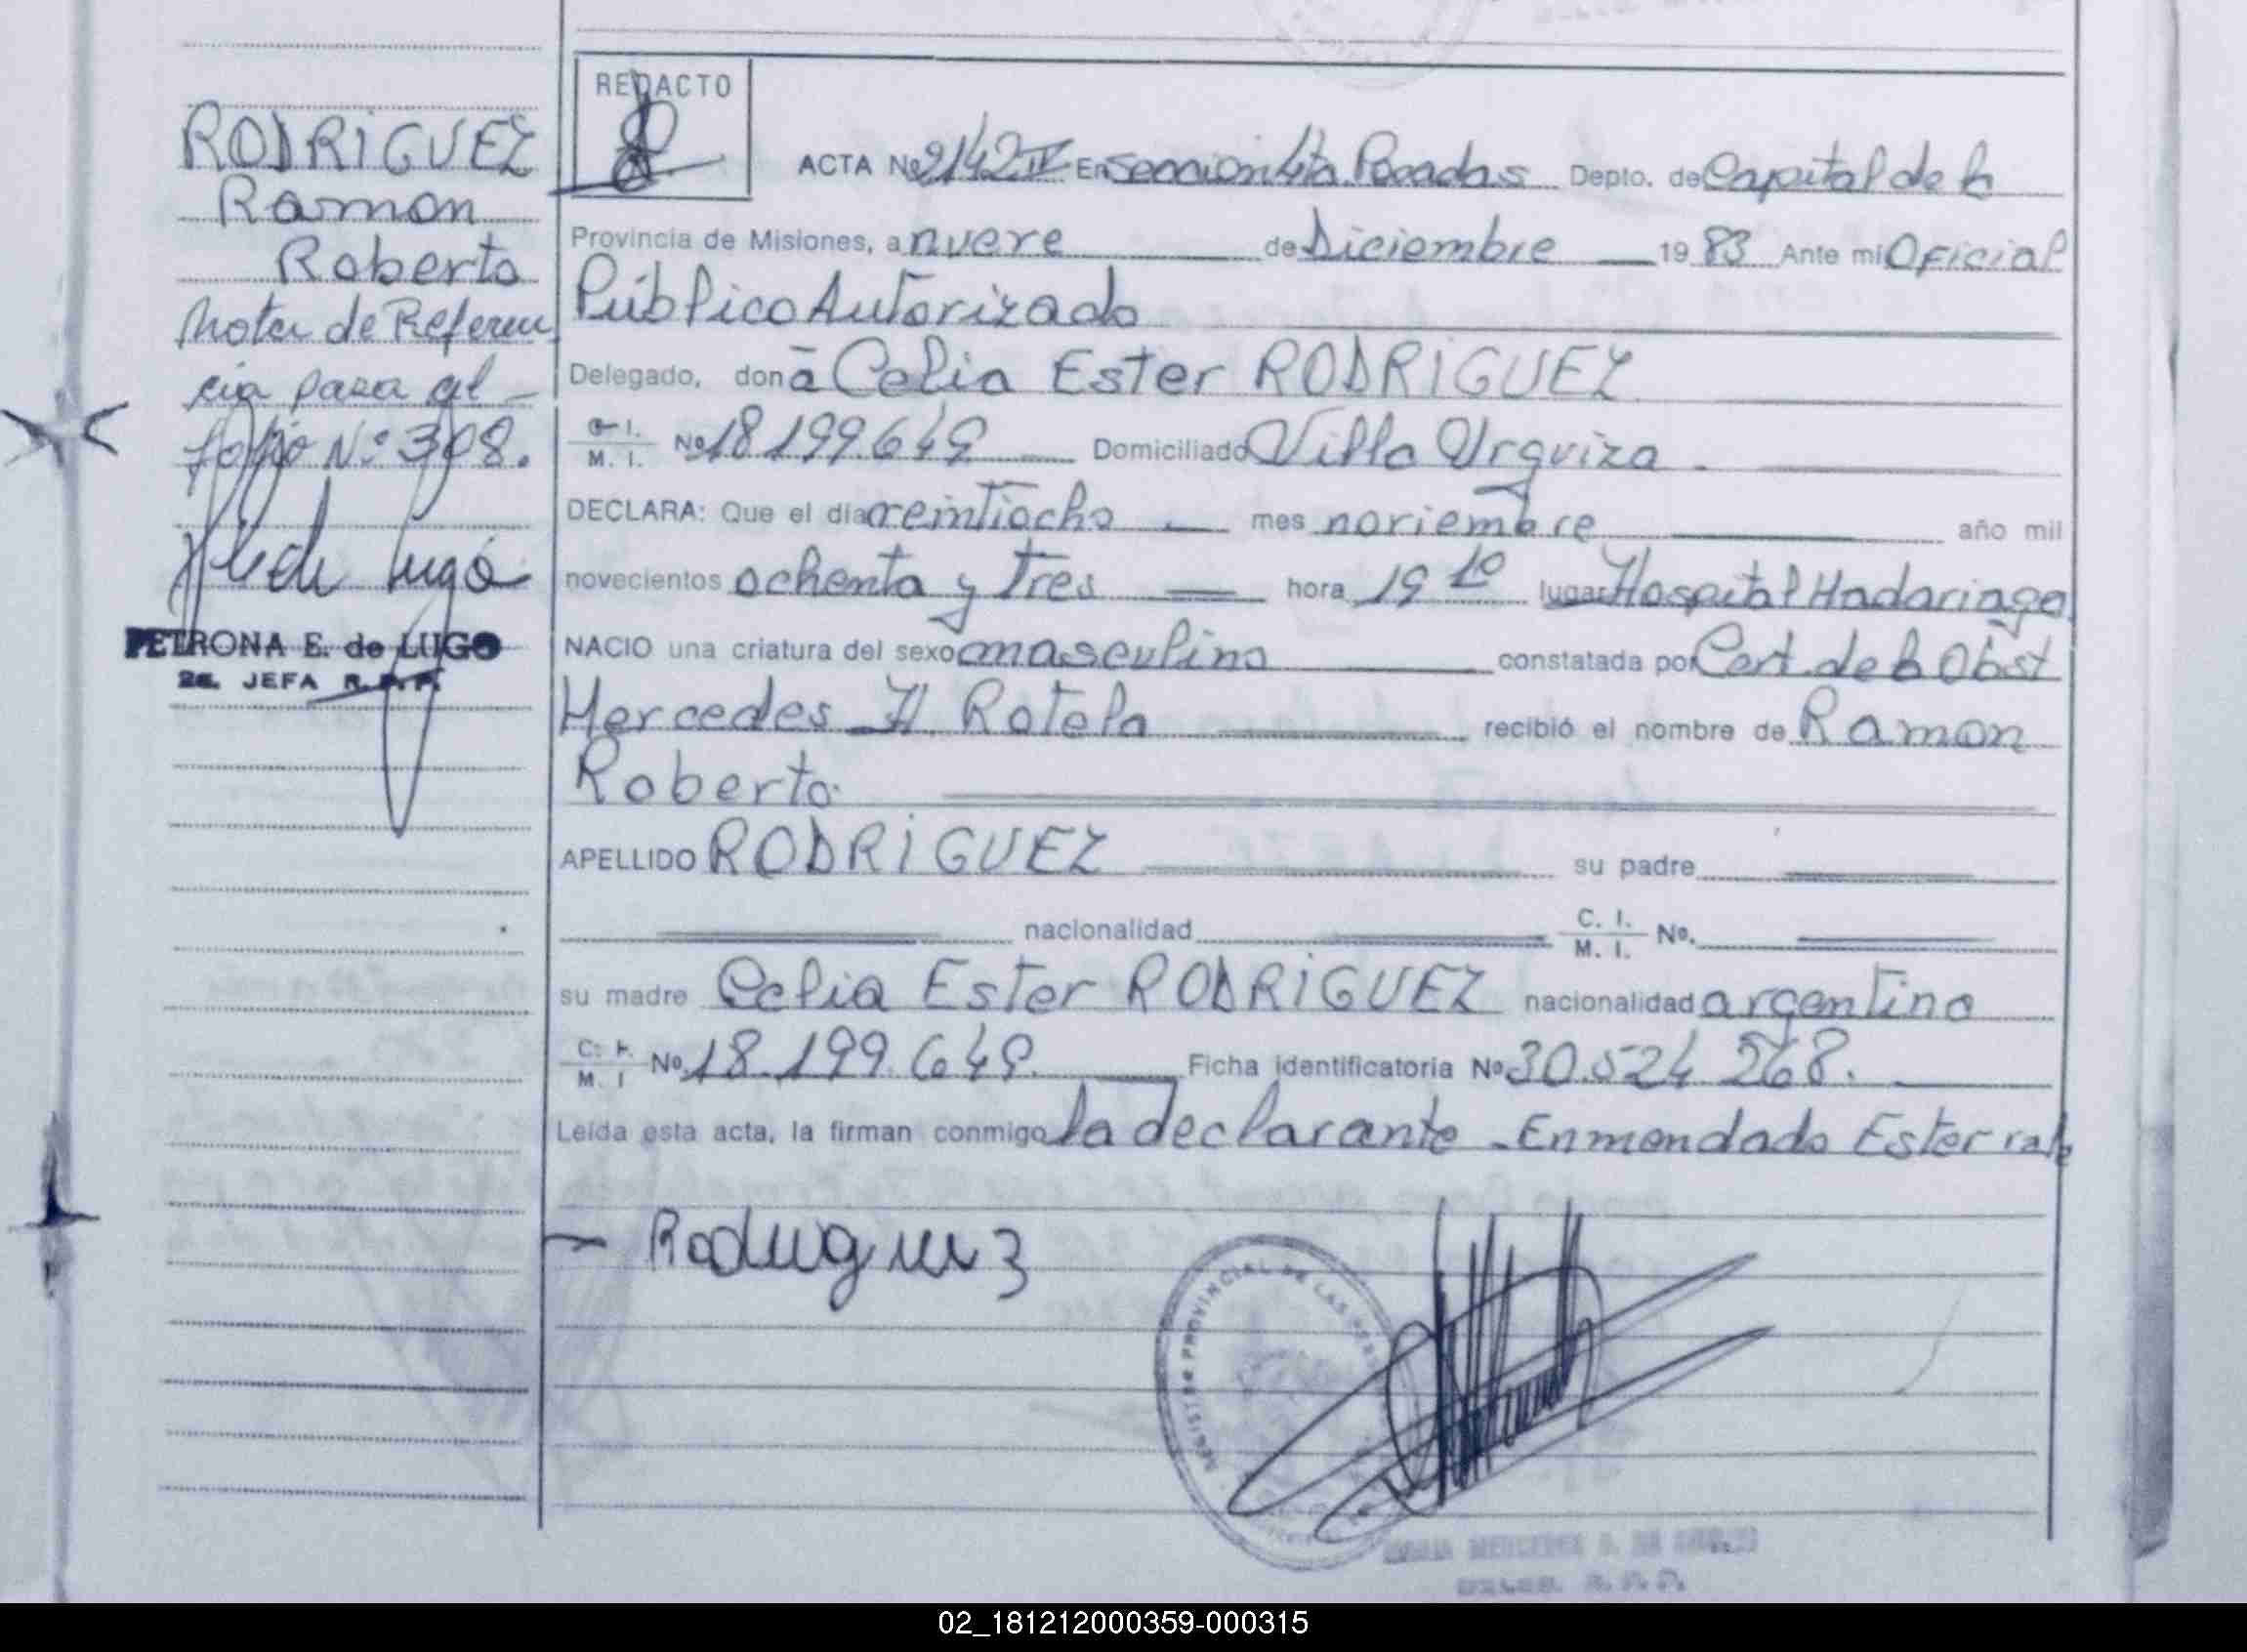 RODRIGUEZ
Ramon
Roberto
Nota de Referen
cia para al
folio Nº 308.
PETRONA E. de LUGO
2a. JEFA R.P.P.
REDACTO
ACTA Nº 2142 IV En Seccion 4ta Posadas Depto. de Capital de la
Provincia de Misiones, a nueve de Diciembre 19 83 Ante mi Oficial
Público Autorizado
Delegado, don a Celia Ester RODRiGUEZ
C. I. M. I. Nº 18.199.649 Domiciliado Villa Urquiza.
DECLARA: Que el día veintiocho mes noviembre año mil
novecientos ochenta y tres hora 19 10 lugar Hospital Madariaga
NACIO una criatura del sexo masculino constatada por Cert. de la Obst
Mercedes H. Rotela recibió el nombre de Ramon
Roberto.
APELLIDO RODRiGUEZ su padre
nacionalidad C. I. M. I. Nº.
su madre Celia Ester RODRiGUEZ nacionalidad argentina
C. I. M. I Nº. 18.199.649. Ficha identificatoria Nº 30.524.568.
Leída esta acta, la firman conmigo la declarante - Enmendado Ester vale
Rodriguez
REGISTRO PROVINCIAL DE LAS
02_181212000359-000315